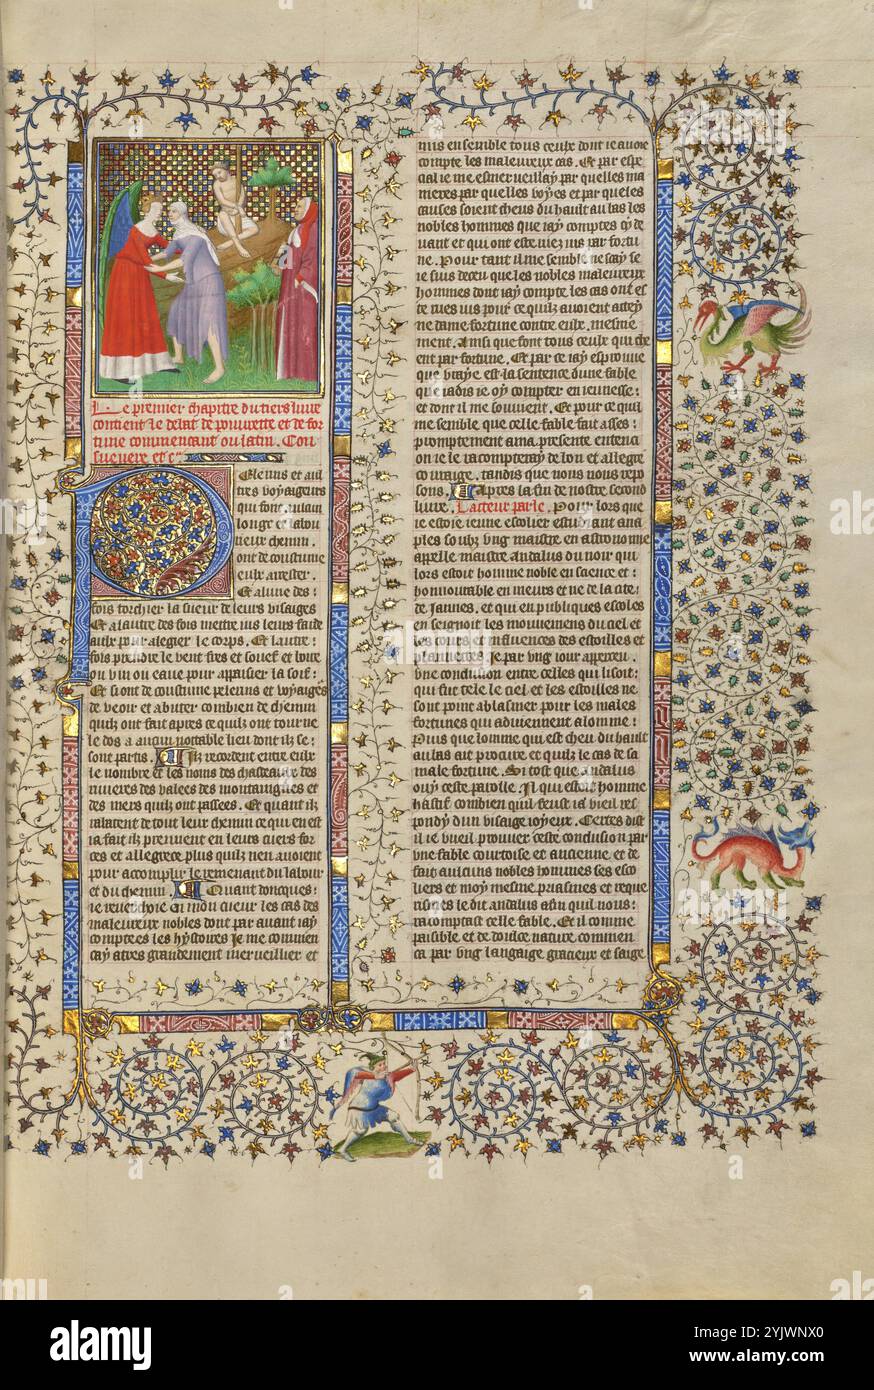 Le premier chapitre du tiers livre
contient le debat de pouurete et de for
tune commencant ou latin. Con
sueuere etc.
elerins et aul
tres voyaigeurs
qui font aulain
longz et labou
rieux chemin.
ont de coustume
eulx arrester.
Et alune des
fois torchier la sueur de leurs visaiges
Et alautre des fois mettre ius leurs farde
aulx pour alegier le corps. Et lautre
fois prendre le vent fres et souef et boire
ou vin ou eaue pour appaisier la soif.
Et si ont de coustume pelerins et voyaigers
de veoir et abuter combien de chemin
quilz ont fait apres ce quilz ont tourne
le dos a aucun notable lieu dont ilz se
sont partis. Ilz recordent entre eulx
le nombre et les noms des chasteaux des
riuieres des valees des montaignes et
des mers quilz ont passees. Et quant ilz
ralatent de tout leur chemin ce qui en est
ia fait ilz preuuent en leurs ciers for
ces et allegrece plus quilz nen auoient
pour accomplir le remenant du labour
et du chemin. Quant doncques
ie reuerchoie en mon cueur les cas des
maleureux nobles dont par auant iay
comptees les hystoires Je me commen
cay atres grandement merueillier et
mis ensemble tous ceulx dont ie auoie
compte les maleureux cas. Et par espe
cial ie me esmerueillay par quelles ma
nieres par quelles voyes et par queles
causes soient cheus du hault au bas les
nobles hommes que iay comptes cy de
uant et qui ont este ruez ius par fortu
ne. Pour tant il me semble ne scay se
ie suis deceu que les nobles maleureux
hommes dont iay compte les cas ont es
te rues ius pour ce quilz auoient attey
ne dame fortune contre eulx mesme
ment. Ainsi que font tous ceulx qui che
ent par fortune. Et par ce iay esprouue
que vraye est la sentence dune fable
que iadis ie oy compter en ieunesse
et dont il me souuient. Et pour ce quil
me semble que celle fable fait asses
promptement a ma presente entenci
on ie le racompteray de bon et allegre
couraige. tandis que nous nous repo
sons. Apres la fin de nostre second
liure. Lacteur parle. Pour lors que
ie estoie ieune escolier estudiant a na
ples soubz vng maistre en astronomie
appelle maistre andalus du noir qui
lors estoit homme noble en science et
honnourable en meurs et ne de la cite
de Jannes. et qui en publiques escoles
enseignoit les mouuemens du ciel et
les cours et influences des estoilles et
planettes je par vng iour apperceu
vne condicion entre celles qui lisoit
qui fut tele le ciel et les estoilles ne
sont point ablasmer pour les males
fortunes qui aduiennent a lomme
Puis que lomme qui est cheu du hault
au bas ait procure et quiz le cas de sa
male fortune. Si tost que andalus
ouy ceste parolle. Il qui estoit homme
hastif combien quil feust ia vieil res
pondy dun visaige ioyeux. Certes dist
il ie vueil prouuer ceste conclusion par
vne fable courtoise et ancienne et de
fait aulcuns nobles hommes ses esco
liers et moy mesme priasmes et reque
risiges le dit andalus afin quil nous
racomptast celle fable. Et il comme
paisible et de doulce nature commen
ca par vng langaige gracieux et saige
alamy
Image ID: 2YJWNX0
www.alamy.com